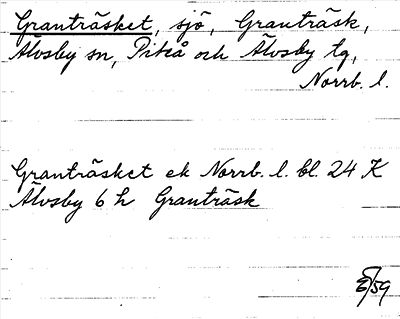 Granträsket, sjö, Granträsk,
Älvsby sn, Piteå och Älvsby tg,
Norrb. l.
Granträsket ek Norrb. l. bl. 24 K
Älvsby 6 h Granträsk
/59